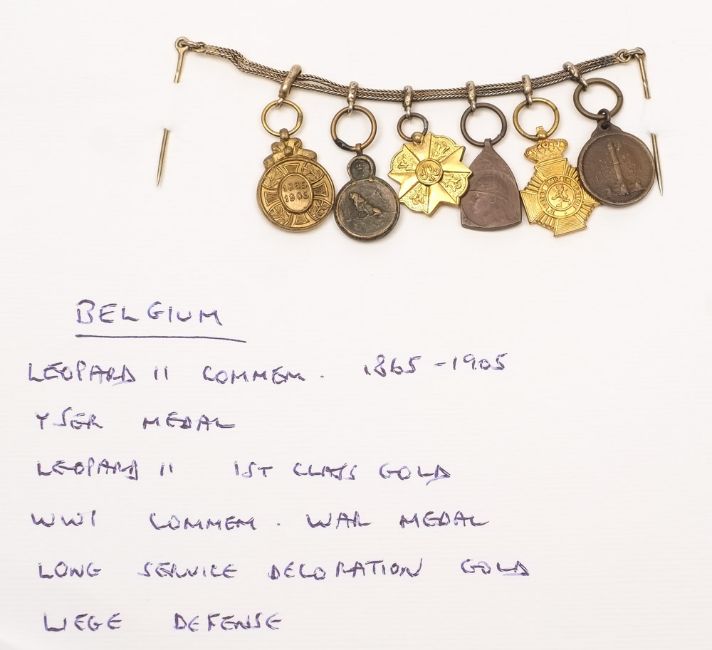 1865
1905
BELGIUM
LEOPARD II COMMEM. 1865-1905
YSER MEDAL
LEOPARD II 1ST CLASS GOLD
WW1 COMMEM. WAR MEDAL
LONG SERVICE DECORATION GOLD
LIEGE DEFENSE